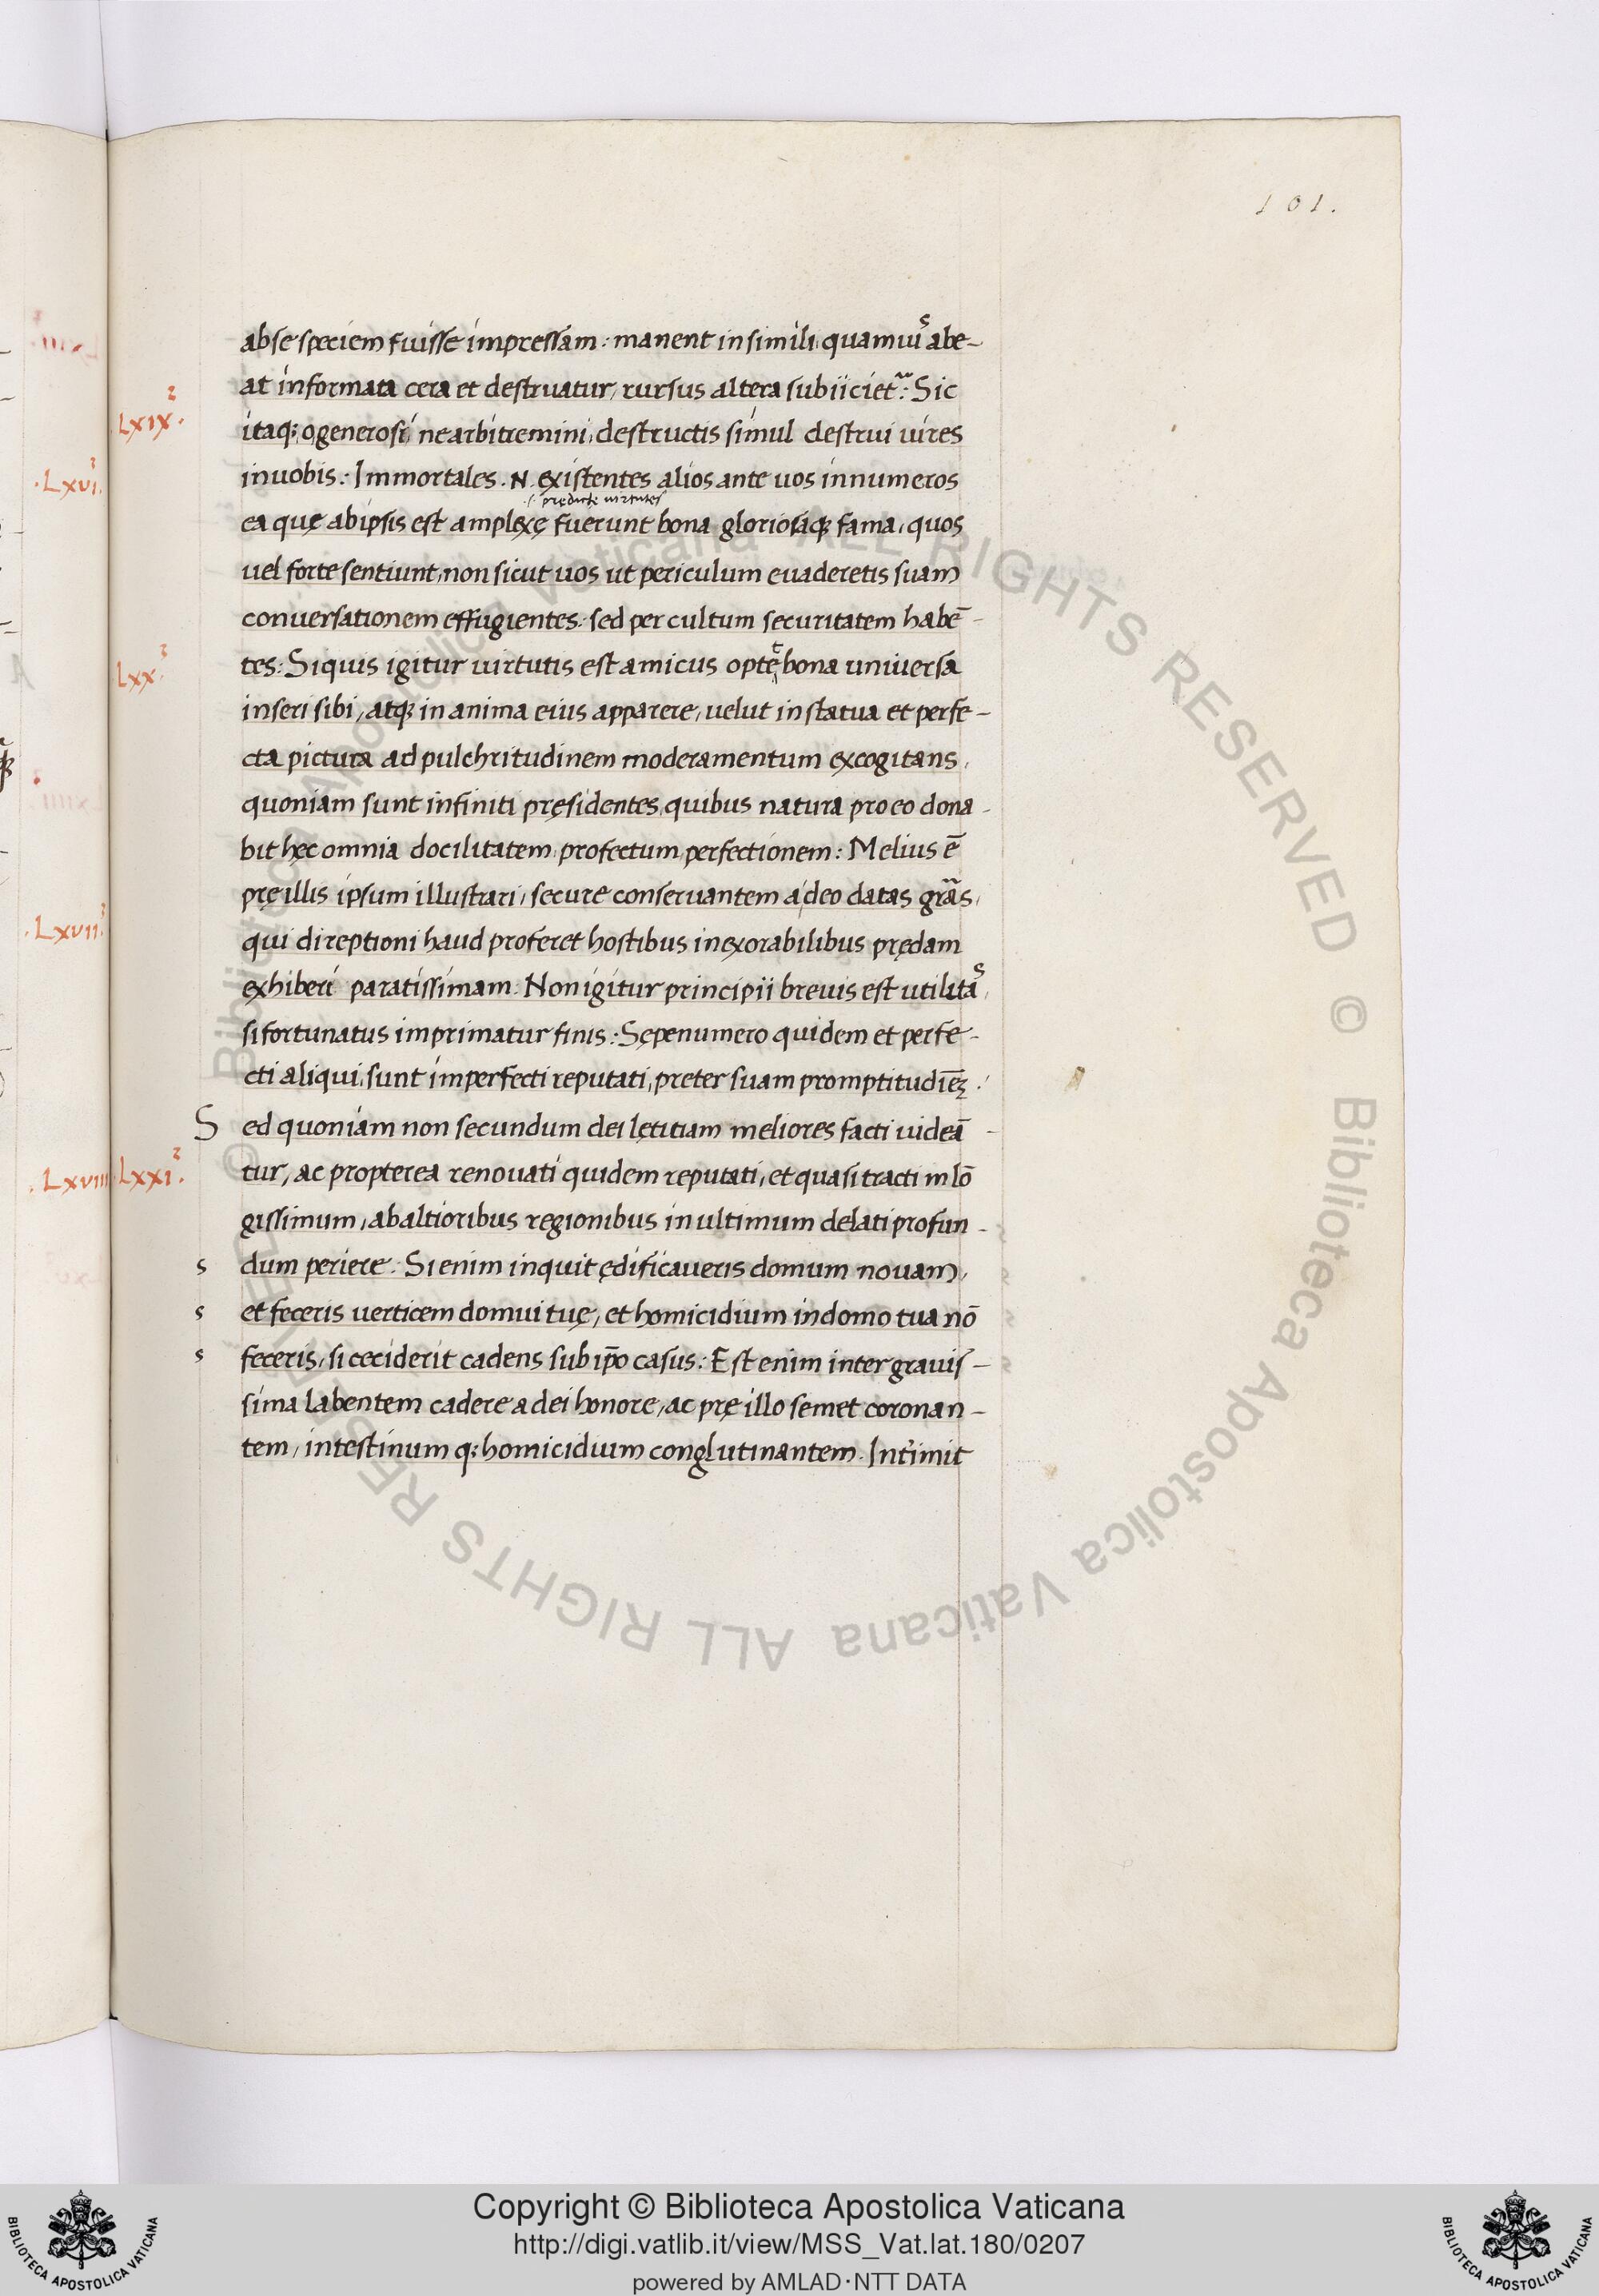 101.
abse speciem fuisse impressam: manent in simili, quamuis abe-
at informata cera et destruatur, rursus altera subiiciet᷑: Sic
LXIXꝫ.
itaq; ogenerosi, ne arbitremini, destructis simul destrui uires
inuobis: Immortales .N. existentes alios ante uos innumeros
.s. predictę uirtutes
ea quę abipsis est amplexę fuerunt bona gloriosaq; fama, quos
uel forte sentiunt, non sicut uos ut periculum euaderetis suam
conuersationem effugientes: sed per cultum securitatem habē-
LXXꝫ.
tes: Siquis igitur uirtutis est amicus optet bona uniuersa
inseri sibi, atq; in anima eius apparere, uelut in statua et perfe-
cta pictura ad pulchritudinem moderamentum excogitans,
quoniam sunt infiniti pręsidentes, quibus natura pro eo dona-
bit hęc omnia docilitatem, profectum, perfectionem: Melius ē
prę illis ipsum illustrari, secure conseruantem a deo datas gr̄as,
qui direptioni haud proferet hostibus inexorabilibus prędam
exhiberi paratissimam. Non igitur principii breuis est utilitas,
si fortunatus imprimatur finis: Sępenumero quidem et perfe-
cti aliqui, sunt imperfecti reputati, preter suam promptitudinē:
Sed quoniam non secundum dei lętitiam meliores facti uideā-
LXXIꝫ.
tur, ac propterea renouati quidem reputati, et quasi tracti in lō
gissimum, ab altioribus regionibus in ultimum delati profun-
s dum periere. Si enim inquit ędificaueris domum nouam,
s et feceris uerticem domui tuę, et homicidium indomo tua nō
s feceris, si ceciderit cadens sub ip̄o casus: Est enim inter grauis-
sima labentem cadere a dei honore, ac prę illo semet coronan-
tem, intestinum q; homicidium conglutinantem. Int̄imit
LXVIꝫ.
.LXVIIꝫ
.LXVIII
Copyright © Biblioteca Apostolica Vaticana
http://digi.vatlib.it/view/MSS_Vat.lat.180/0207
powered by AMLAD·NTT DATA
BIBLIOTECA APOSTOLICA VATICANA
BIBLIOTECA APOSTOLICA VATICANA
© Biblioteca Apostolica Vaticana ALL RIGHTS RESERVED © Biblioteca Apostolica Vaticana ALL RIGHTS RESERVED